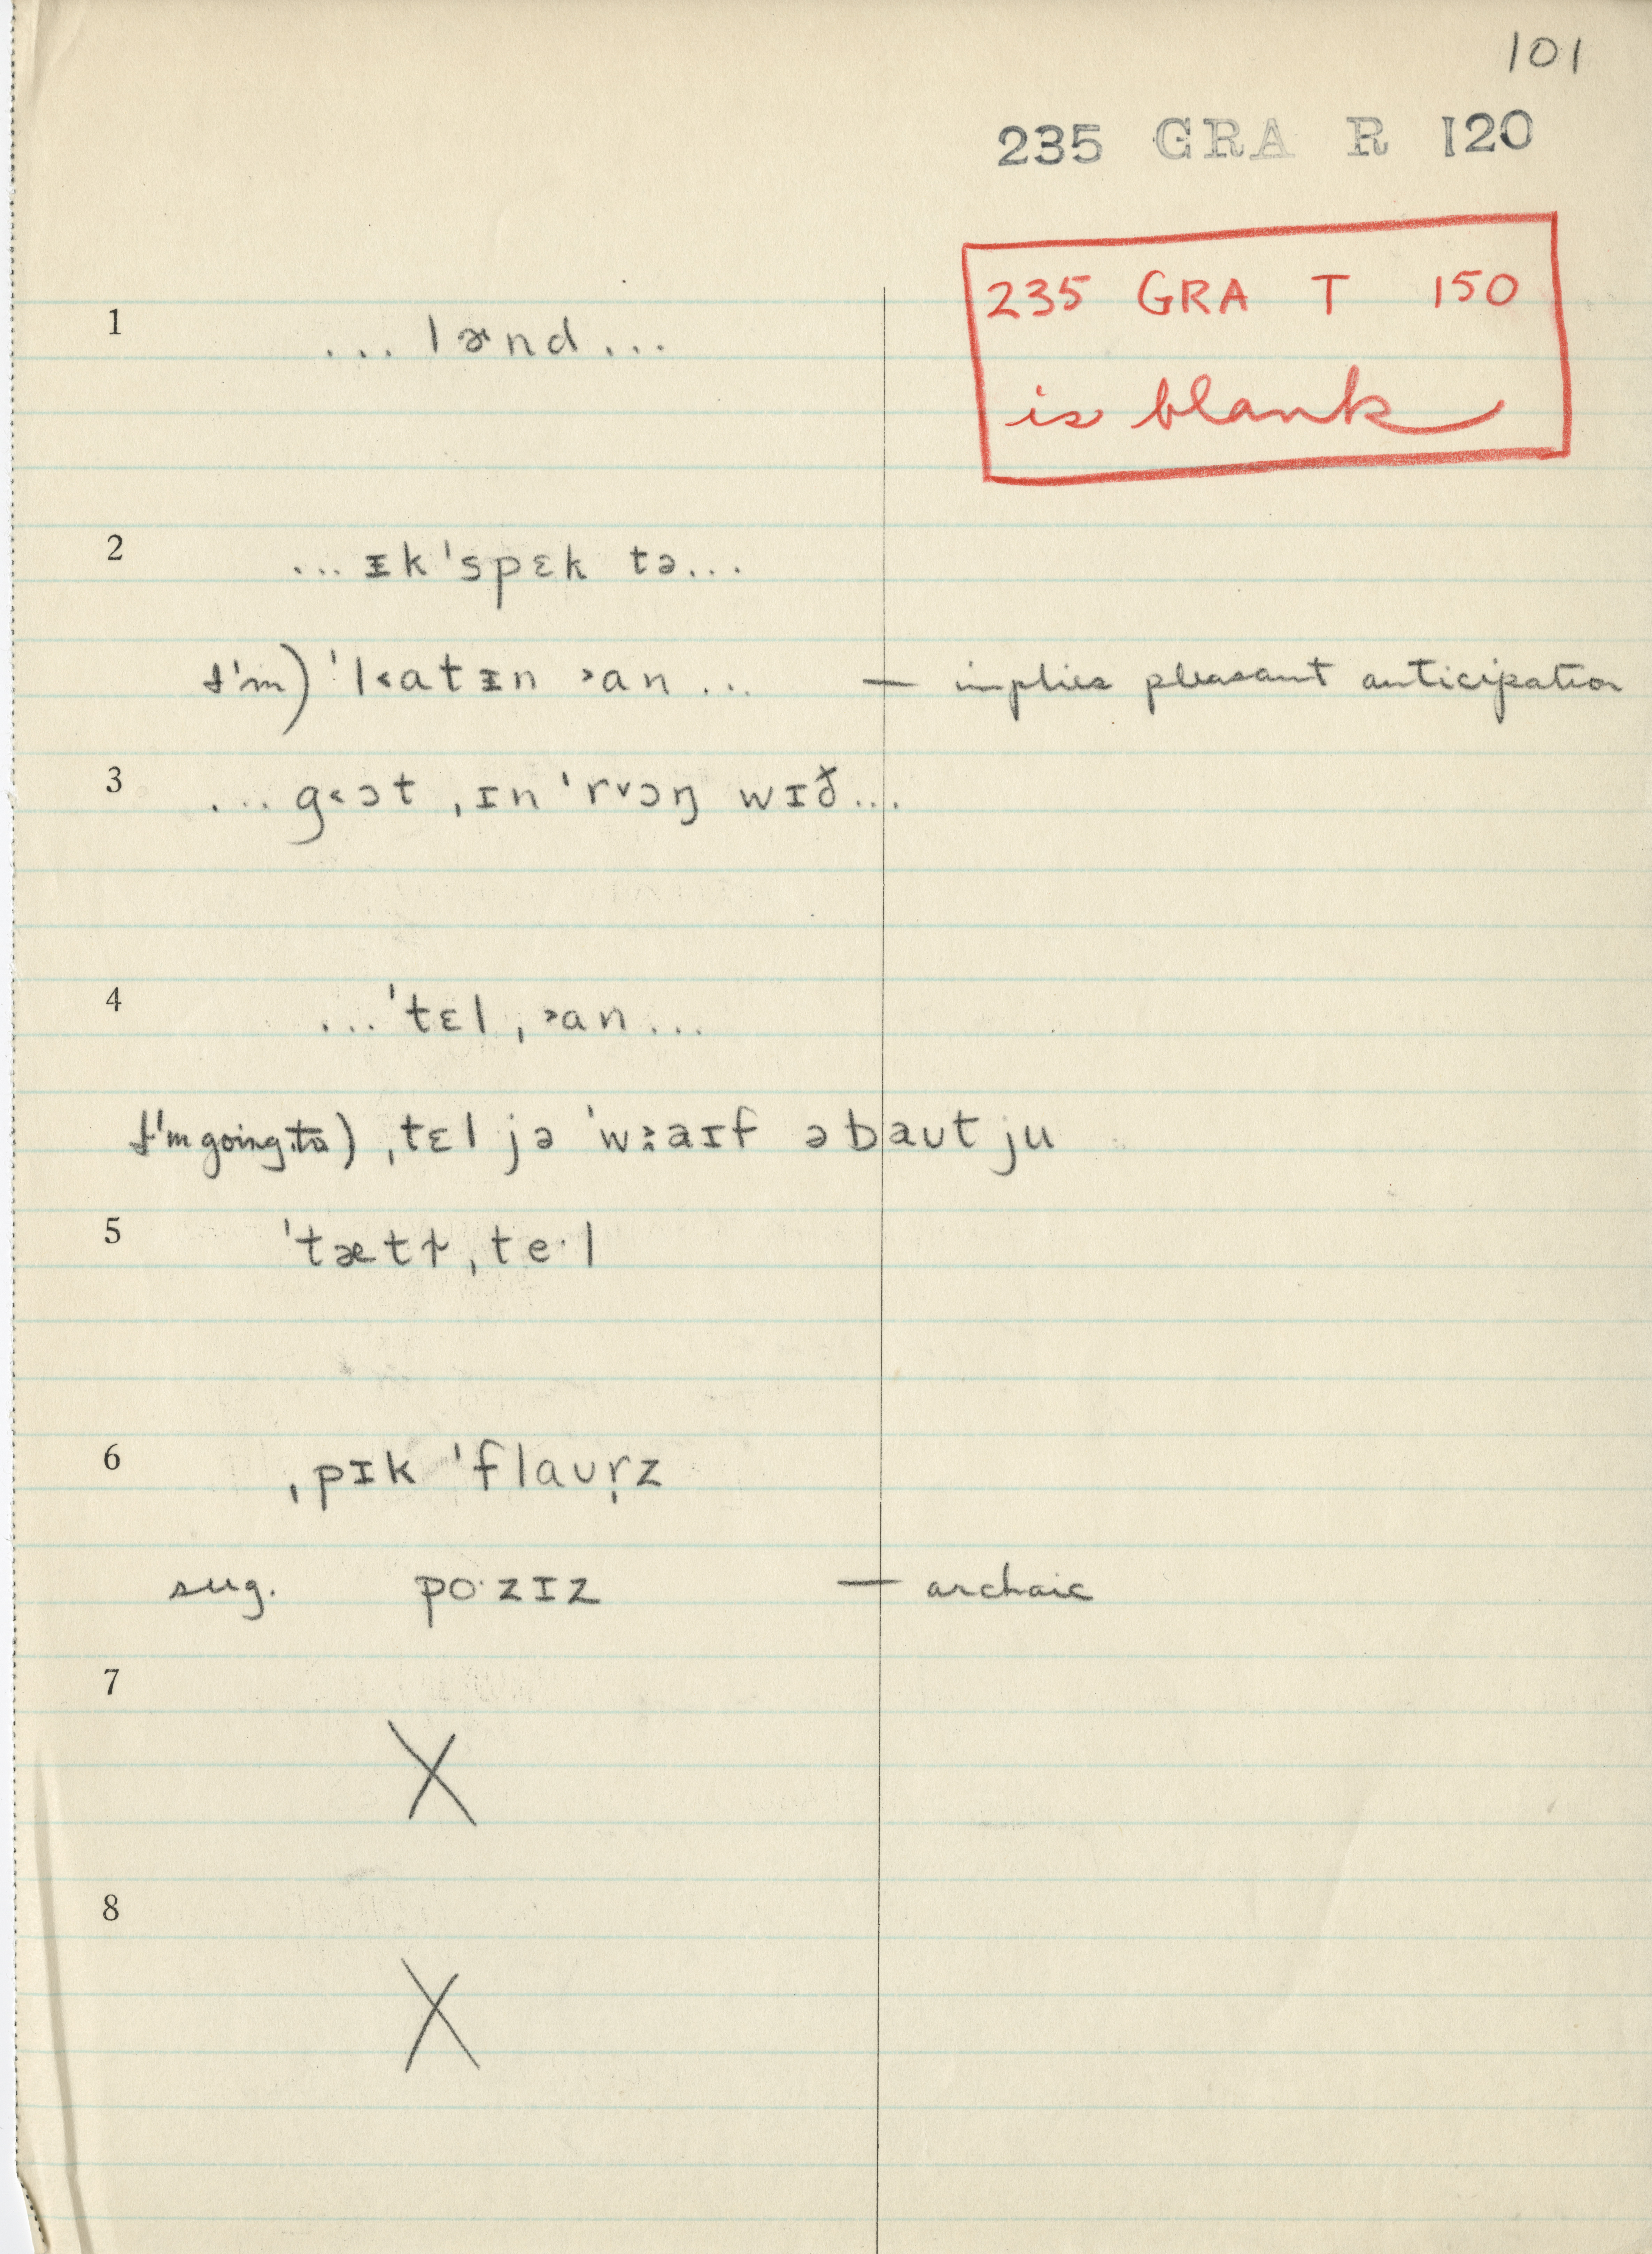 101
235 GRA R 120
235 GRA T 150
is blank
1 ... lænd ...
2 ... ɪk'spɛk tə...
I'm) 'l˂atɪn ˃an ... — implies pleasant anticipation
3 ... g˂ɔt ˌɪn 'r˅ɔŋ wɪð...
4 ... 'tɛl ˌ˃an ...
I'm going to) ˌtɛl jə 'w aɪf əbaʊt ju
5 'tætɫ ˌte·l
6 ˌpɪk 'flaʊr̩z
sug. po·zɪz — archaic
7
X
8
X